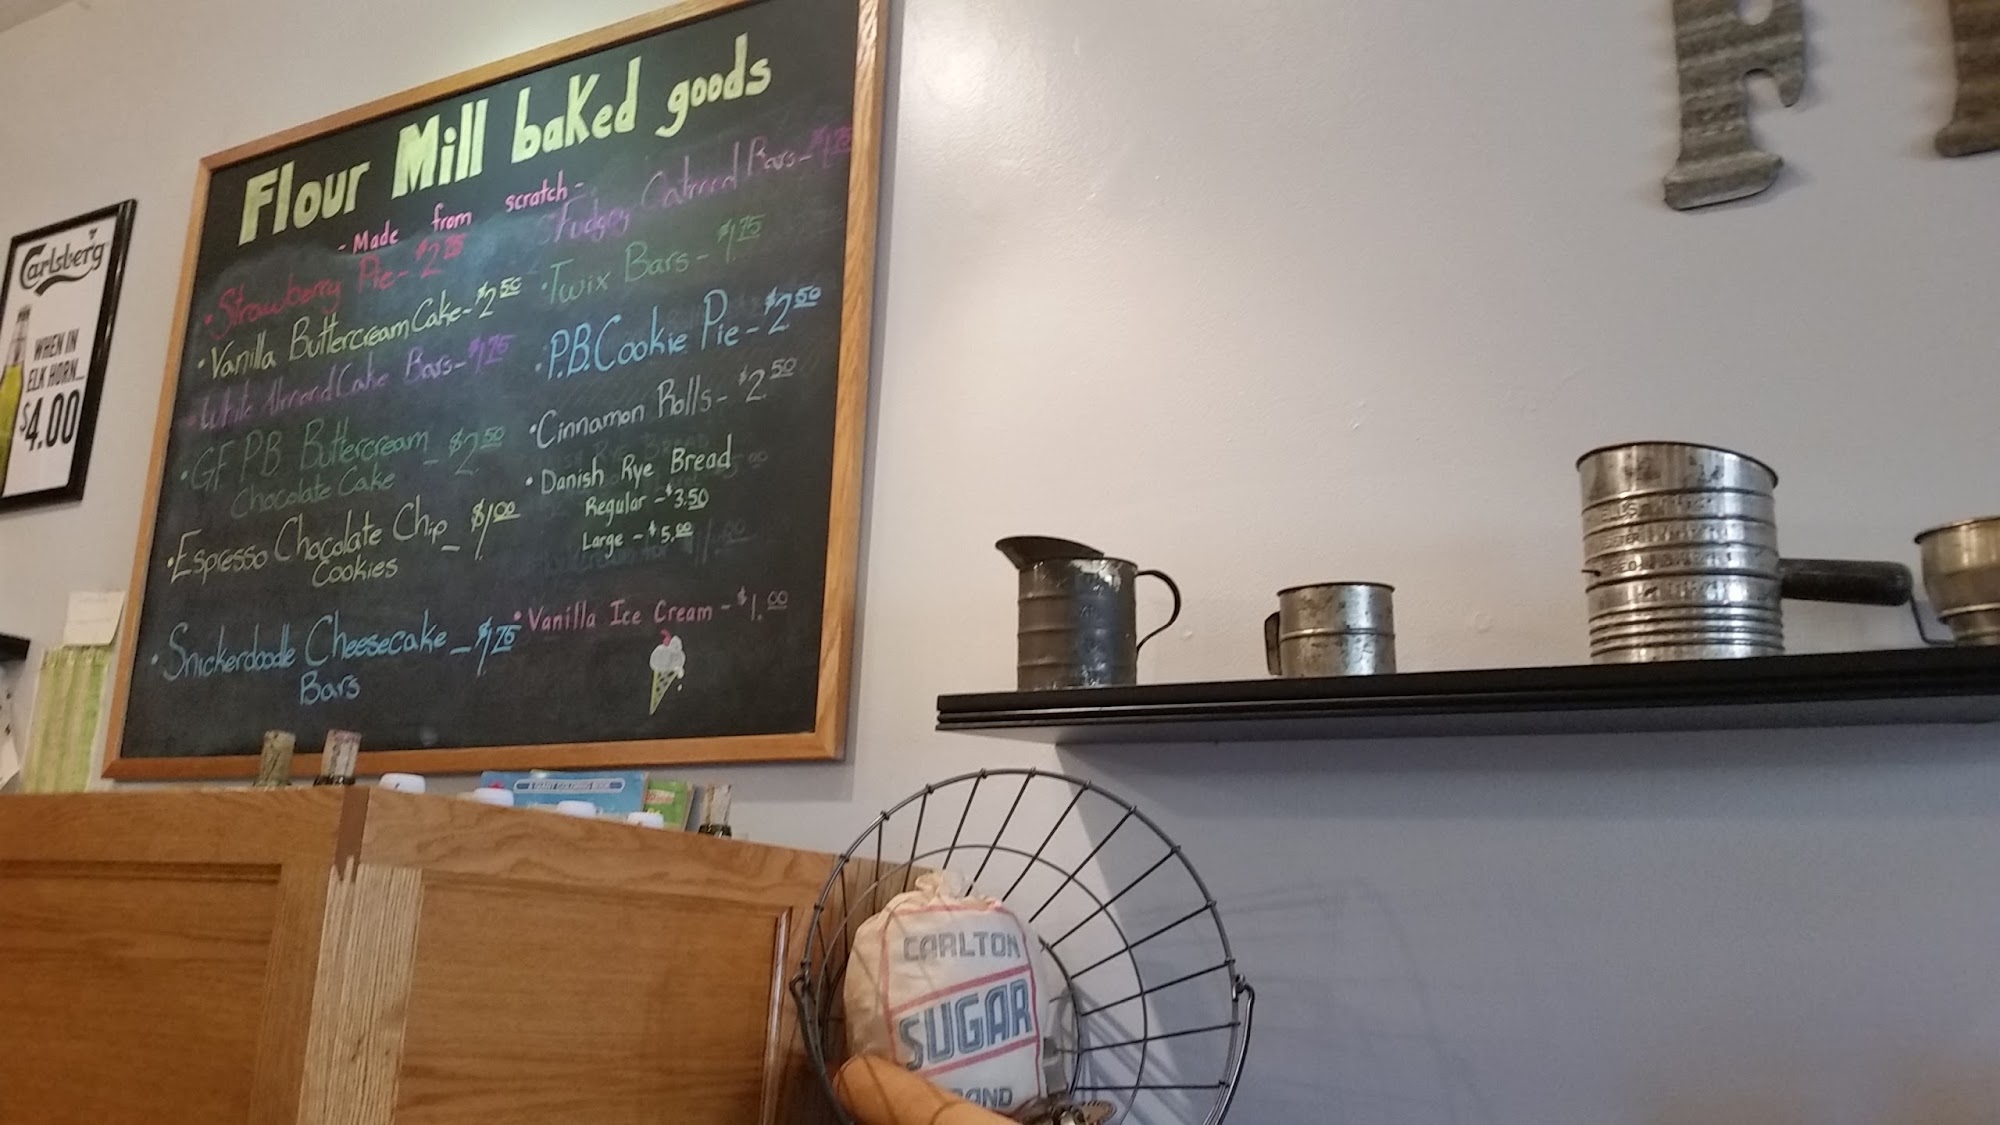 Flour Mill baked goods
- Made from scratch -
• Strawberry Pie - $2.75
• Vanilla Buttercream Cake - $2.50
• White Almond Cake Bars - $1.75
• GF P.B. Buttercream - $2.50
Chocolate Cake
• Espresso Chocolate Chip - $1.00
Cookies
• Snickerdoodle Cheesecake - $1.75
Bars
• Fudgey Oatmeal Bars - $1.75
• Twix Bars - $1.75
• P.B. Cookie Pie - $2.50
• Cinnamon Rolls - $2.50
• Danish Rye Bread
Regular - $3.50
Large - $5.00
• Vanilla Ice Cream - $1.00
Carlsberg
WHEN IN
ELK HORN...
$4.00
A GIANT COLORING BOOK
CARLTON
SUGAR